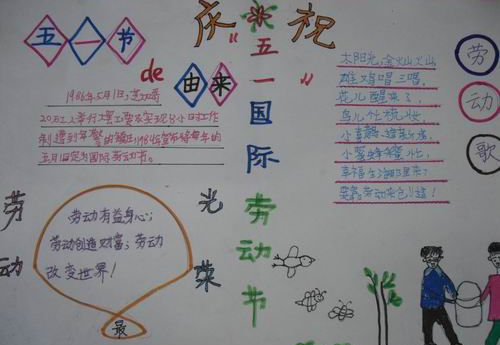 庆祝
“五一”国际劳动节
五一节
de
由来
1986年5月1日,芝加哥
20万工人举行大罢工要求实现8小时工作
制遭到军警的镇压1989宣布将每年的
五月1日定为国际劳动节。
劳动
光荣
劳动有益身心;
劳动创造财富;劳动
改变世界!
最
劳动歌
太阳光金灿灿,
雄鸡唱三唱,
花儿醒来了,
鸟儿忙梳妆,
小喜鹊
小蜜蜂
幸福生活哪里来?
要靠劳动来创造!